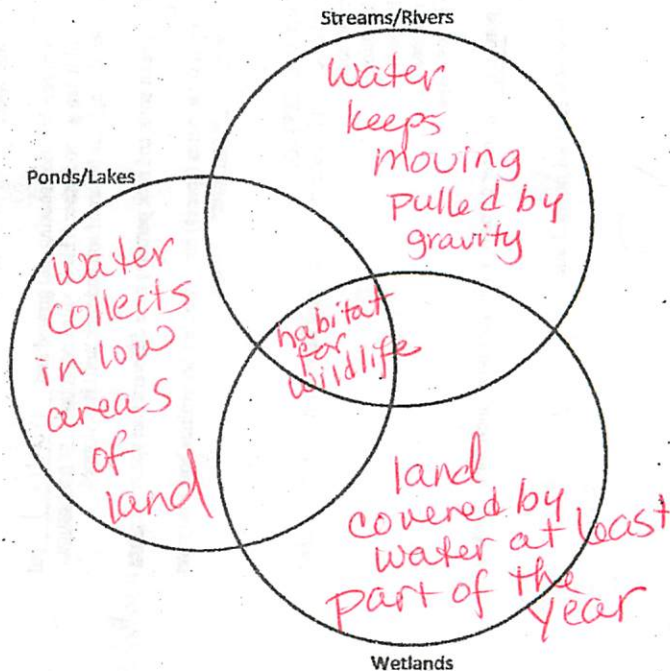 Streams/Rivers
water
keeps
moving
pulled by
gravity
Ponds/Lakes
water
collects
in low
areas
of
land
habitat
for
wildlife
land
covered by
water at least
part of the
year
Wetlands